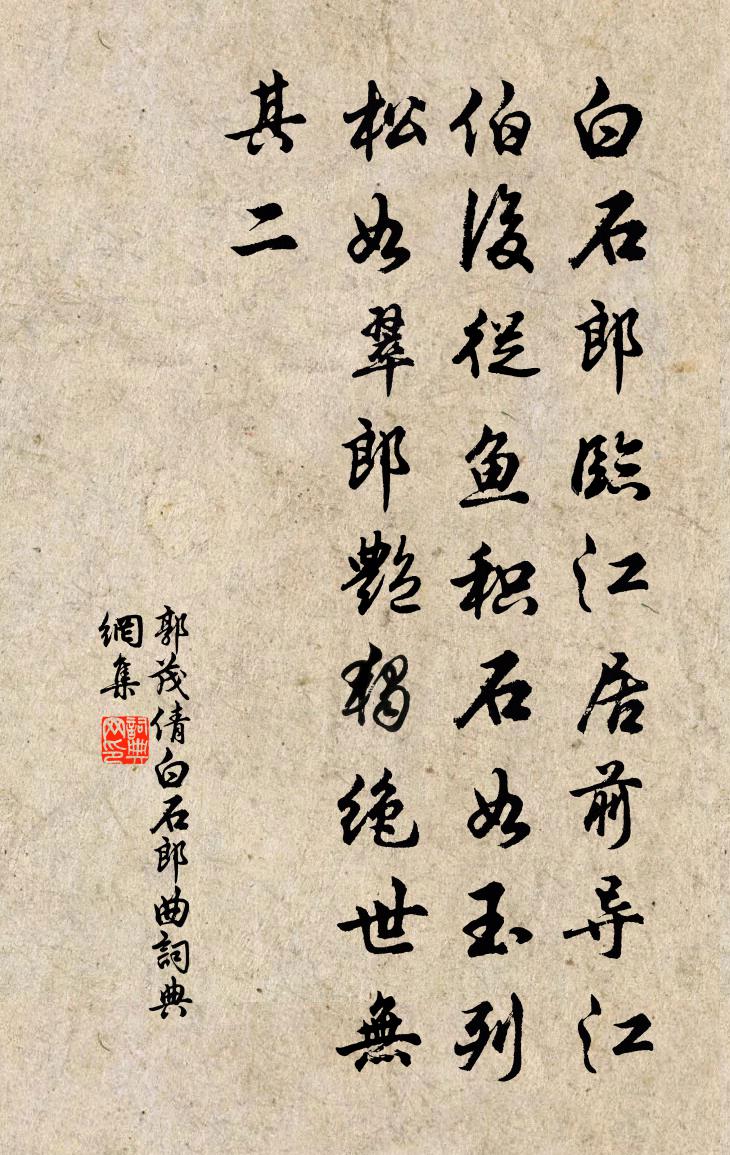 白石郎臨江居前导江
伯後從魚积石如玉列
松如翠郎艷獨绝世無
其二
郭茂倩白石郎曲詞典
網集
詞典
网印